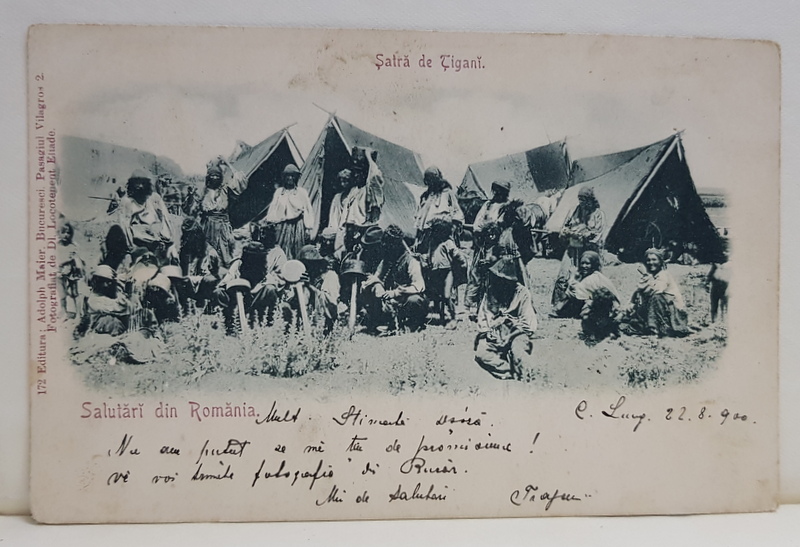 Șatră de Țiganĭ.
172 Editura: Adolph Maier, Bucuresci, Pasagiul Vilagros 2.
Fotografiat de Dl. Locotenent Enade.
Salutărĭ din România.
Mult Stimate
C. Lung. 22.8.900.
Nu am putut se mĕ tin de promisiune!
vĕ voi trimite fotografia di Rucăr.
Mii de Salutări